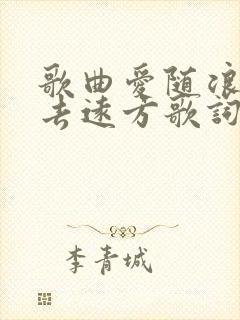 歌曲愛随浪
去遠方歌詞
李青城